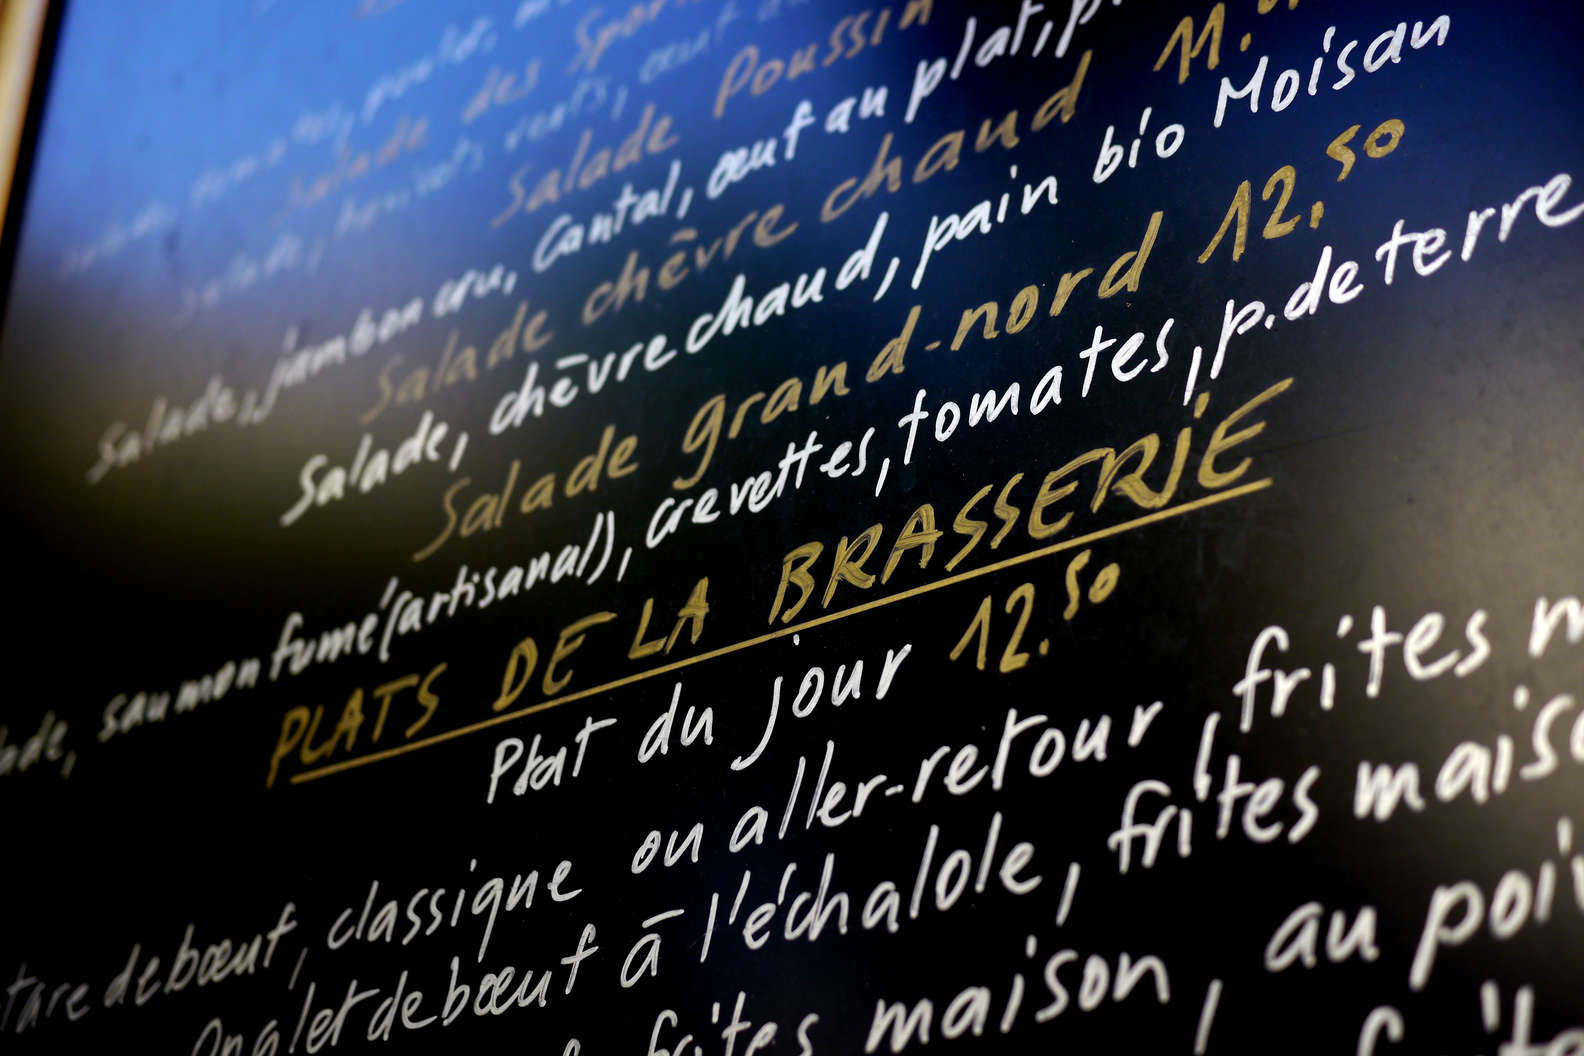 poulet,
Salade des
Salade, haricots verts, œuf au
Salade Poussin
Salade, jambon cru, Cantal, œuf au plat, p.
Salade chēvre chaud 11.
Salade, chēvre chaud, pain bio Moisan
Salade grand-nord 12.50
saumon fumé (artisanal), crevettes, tomates, p. de terre
PLATS DE LA BRASSERIE
Plat du jour 12.50
tare de bœuf, classique ou aller-retour, frites m
Onglet de bœuf ā l'échalole, frites maiso
frites maison, au poiv